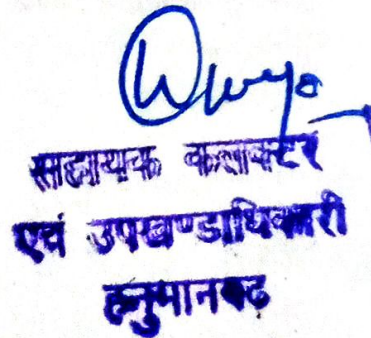 सहायक कलाक्टर
एवं उपखण्डाधिकारी
हनुमानगढ